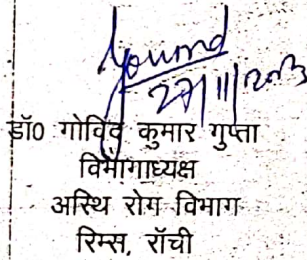 27/11/2023
डॉ0 गोविंद कुमार गुप्ता
विभागाध्यक्ष
अस्थि रोग विभाग
रिम्स, राँची